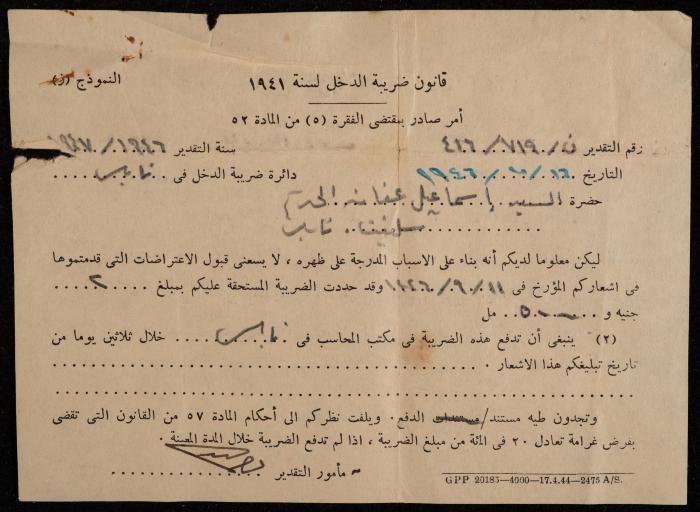 قانون ضريبة الدخل لسنة ١٩٤١
النموذج (ز)
أمر صادر بمقتضى الفقرة (٥) من المادة ٥٢
رقم التقدير ن/٧١٩/٤٢٦
سنة التقدير ١٩٤٧/١٩٤٦
التاريخ ١٩٤٦
دائرة ضريبة الدخل فى نابلس
حضرة السيد إسماعيل
سلفيت نابلس
ليكن معلوما لديكم أنه بناء على الاسباب المدرجة على ظهره ، لا يسعنى قبول الاعتراضات التى قدمتموها
فى اشعاركم المؤرخ فى وقد حددت الضريبة المستحقة عليكم بمبلغ ٢
جنيه و ٥٠٠ مل
(٢) ينبغى أن تدفع هذه الضريبة فى مكتب المحاسب فى نابلس خلال ثلاثين يوما من
تاريخ تبليغكم هذا الاشعار
وتجدون طيه مستند/ الدفع . ويلفت نظركم الى أحكام المادة ٥٧ من القانون التى تقضى
بفرض غرامة تعادل ٢٠ فى المائة من مبلغ الضريبة ، اذا لم تدفع الضريبة خلال المدة المعينة .
مأمور التقدير
GPP 20185—4000—17.4.44—2475 A/S.